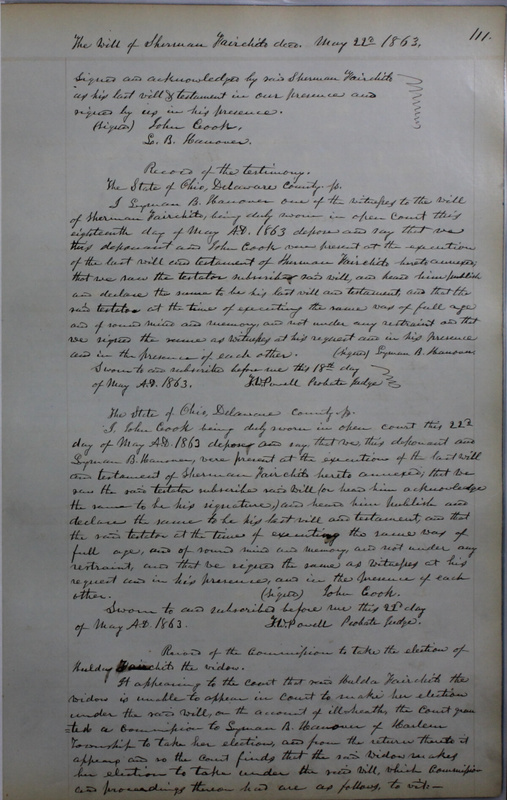 111.
The Will of Sherman Fairchits decd. May 22d 1863.
Signed and acknowledged by said Sherman Fairchits
as his last will & testament in our presence and
signed by us in his presence.
(Signed) John Cook,
L. B. Hanover.
Record of the testimony.
The State of Ohio, Delaware County ss.
I Lyman B. Hanover one of the witnesses to the will
of Sherman Fairchits, being duly sworn in open Court this
eighteenth day of May A.D. 1863 depose and say that we
this deponant and John Cook were present at the execution
of the last will and testament of Sherman Fairchits hereto annexed;
that we saw the testator subscribe said will, and heard him publish
and declare the same to be his last will and testament, and that the
said testator at the time of executing the same was of full age
and of sound mind and memory, and not under any restraint and that
we signed the same as witnesses at his request and in his presence
and in the presence of each other. (Signed) Lyman B. Hanover
Sworn to and subscribed before me this 18th day
of May A.D. 1863. T.W. Powell Probate Judge
The State of Ohio, Delaware County ss.
I, John Cook being duly sworn in open court this 22d
day of May A.D. 1863 depose and say that we, this deponent and
Lyman B. Hanover, were present at the execution of the last will
and testament of Sherman Fairchits hereto annexed; that we
saw the said testator subscribe said will (or heard him acknowledge
the same to be his signature,) and heard him publish and
declare the same to be his last will and testament, and that
the said testator at the time of executing the same was of
full age, and of sound mind and memory, and not under any
restraint, and that we signed the same as witnesses at his
request and in his presence, and in the presence of each
other. (Signed) John Cook.
Sworn to and subscribed before me this 22d day
of May A.D. 1863. T.W. Powell Probate Judge.
Record of the Commission to take the election of
Huldey Fairchits the widow.
It appearing to the Court that said Hulda Fairchits the
widow is unable to appear in Court to make her election
under the said will, on the account of ill-health, the Court gran
=ted a Commission to Lyman B. Hanover of Harlem
Township to take her election, and from the return thereto it
appears and so the Court finds that the said widow makes
her election to take under the said will, which Commission
and proceedings thereon had are as follows, to wit:-